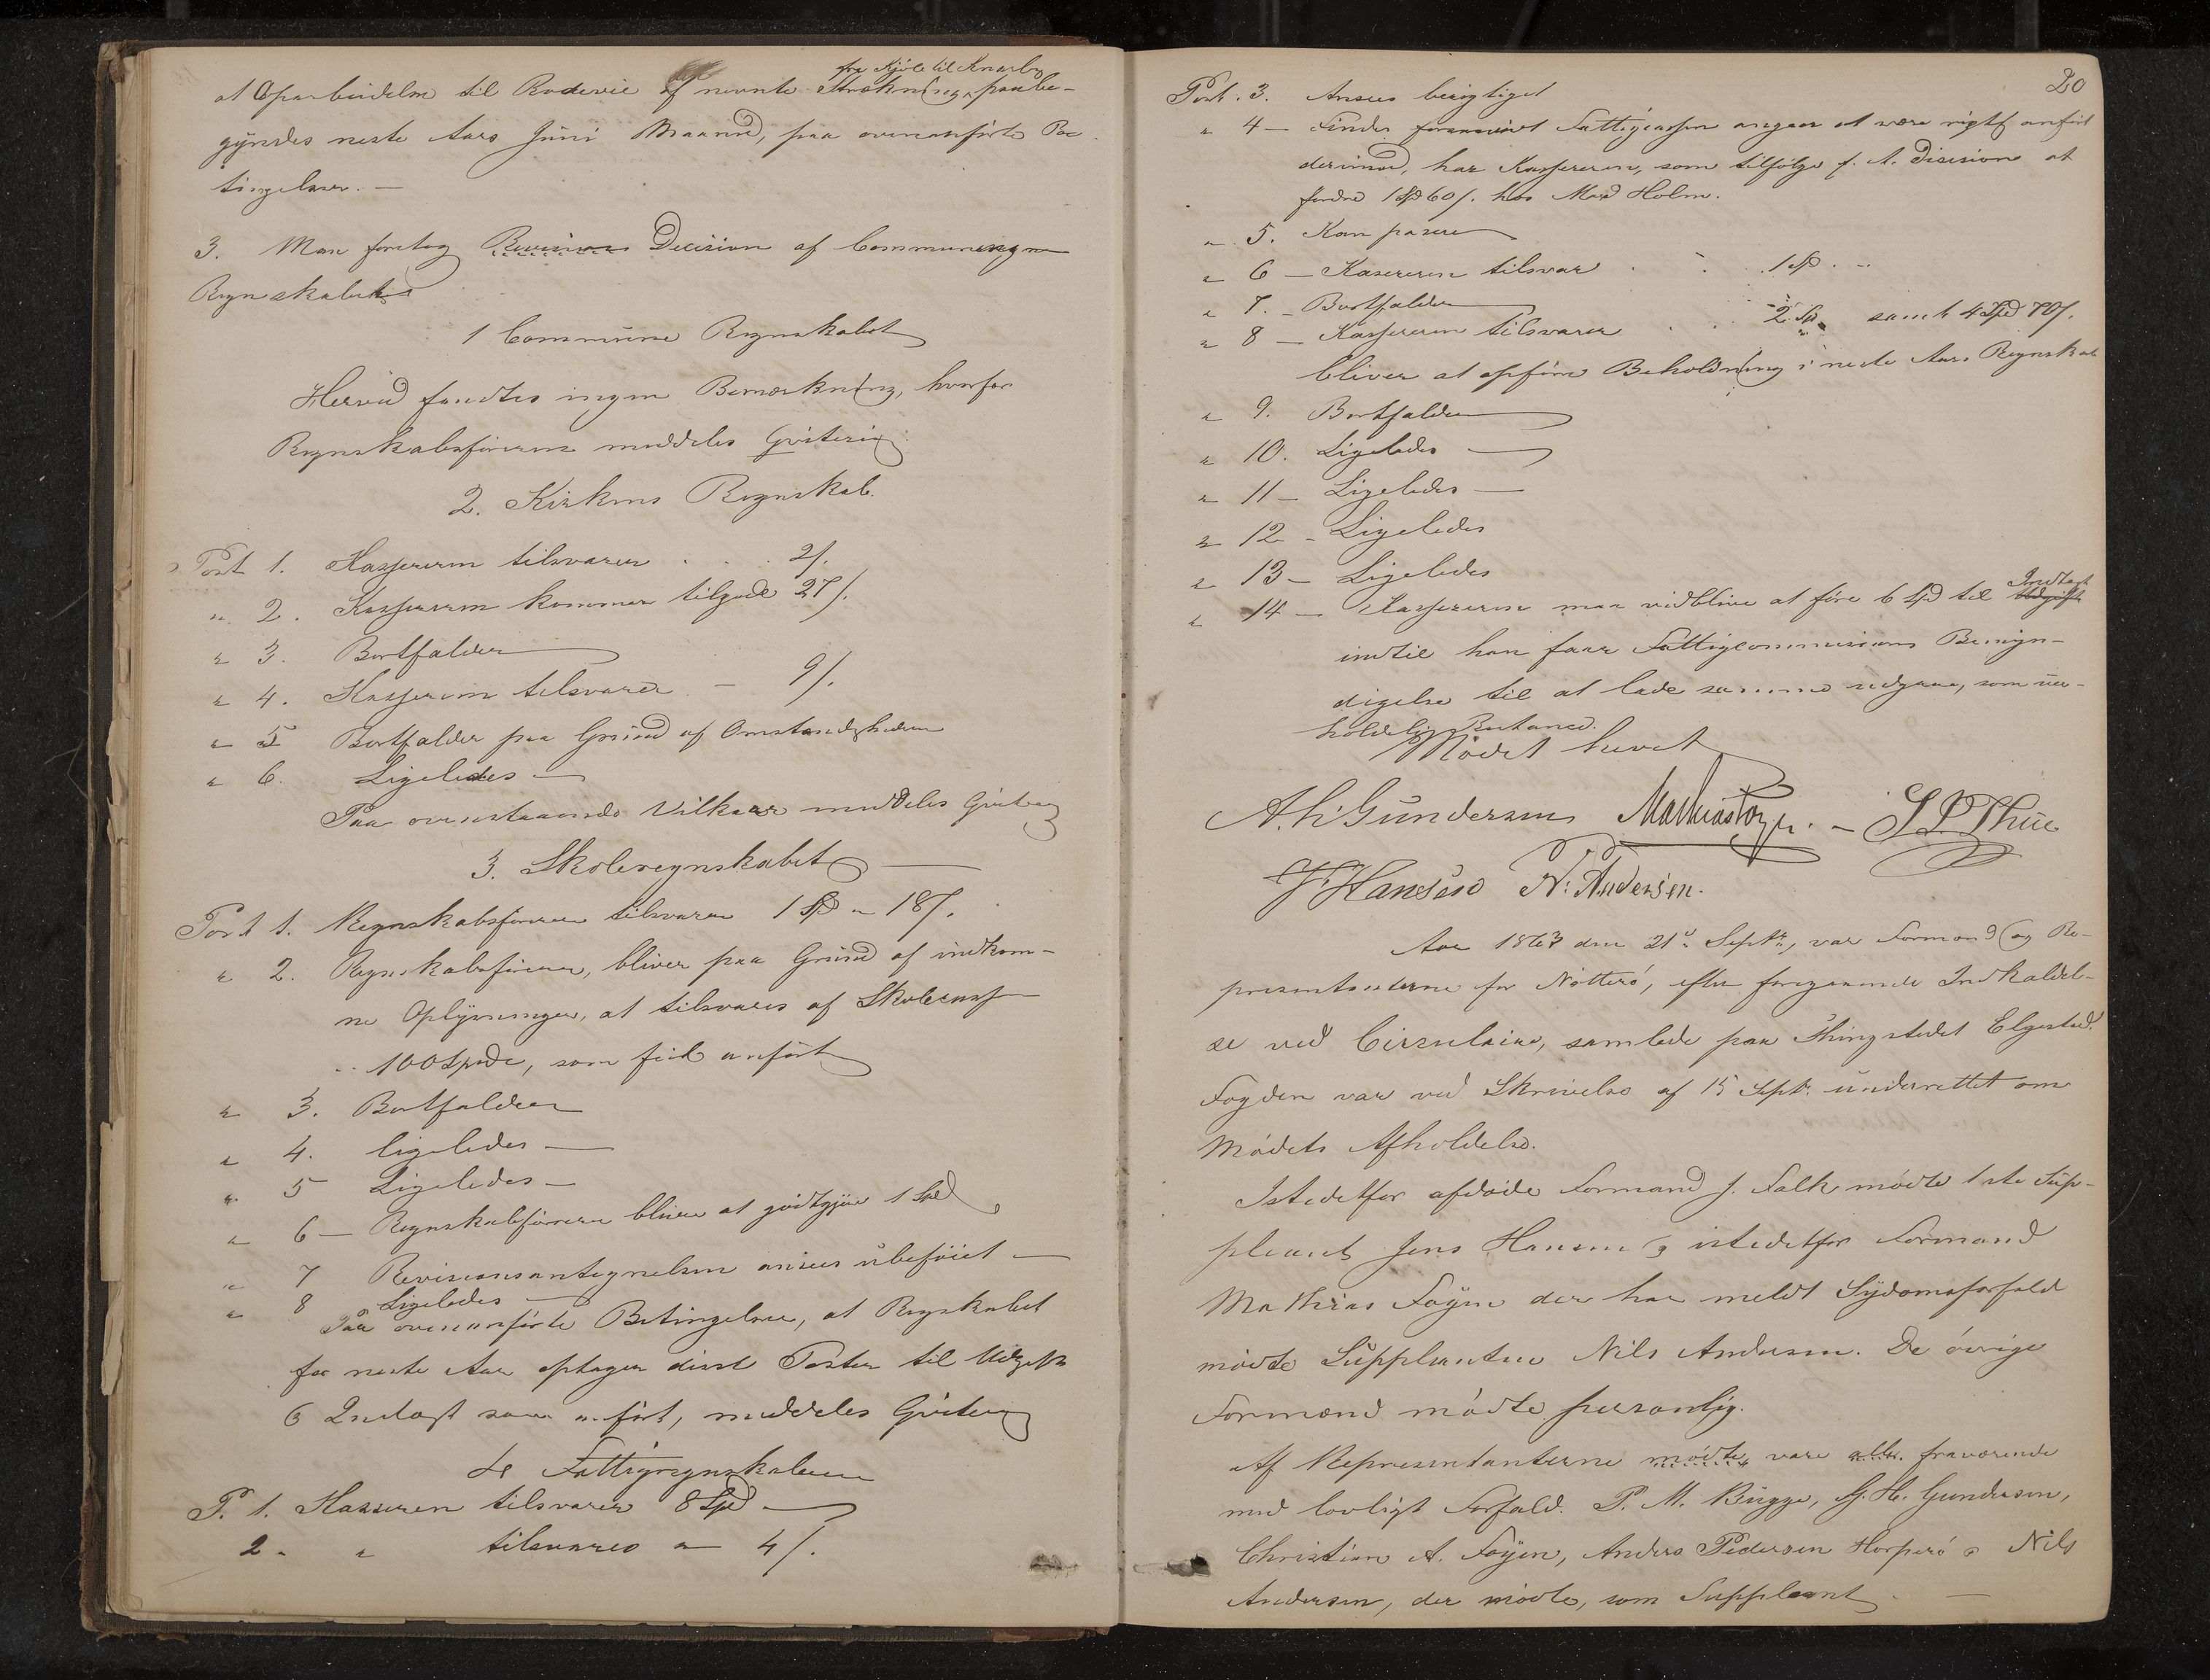 fra Kjøle til Knarbg
at Oparbeidelsen til Rodevei af nevnte Strækning paabe-
gyndes neste Aars Juni Maaned, paa ovenanførte Be-
tingelser. —
3. Man foretog Revisions Decision af Communens
Regnskaber
1 Commune Regnskabet
Herved fandtes ingen Bemærkning, hvorfor
Regnskabsføreren meddeles Qvitering
2. Kirkens Regnskab.
Post 1. Kassereren tilsvarer . . . 2/.
" 2. Kassereren kommer tilgode 27/.
" 3. Bortfalder
" 4. Kassereren tilsvarer — 9/.
" 5 Bortfalder paa Grund af Omstændigheden
" 6. Ligeledes —
Paa ovenstaaende Vilkaar meddeles Qvitering
3. Skoleregnskabet —
Post 1. Regnskabsføreren tilsvarer 1 Spd " 18/.
" 2. Regnskabsføreren, bliver paa Grund af indkom-
ne Oplysninger, at tilsvares af Skolecassen
100 Spede, som feil anført
" 3. Bortfalder
" 4. ligeledes —
" 5 Ligeledes —
" 6 — Regnskabsføreren bliver at godtgjøre 1 Spd
" 7 Revisionsantegnelsen ansees ubeføiet —
" 8 Ligeledes —
Paa ovenanførte Betingelser, at Regnskabet
for neste Aar optager disse Poster til Udgift
& Indtægt som anført, meddeles Qvitering
4 Fattigregnskabern
P. 1. Kasseren tilsvarer 8 Spd —
2 - " tilsvares " 4/.
20
Post. 3. Ansees berigtiget
" 4 — Findes Fattigcassen angaar at være rigtig anført
derimod, har Kassereren, som tilfølge f. A. Disision at
fordre 1 Spd 60/. hos Mad Holm.
" 5. Kan passere
" 6 — Kasereren tilsvar . . 1 Sp. "
" 7. — Bortfalder
" 8 — Kassereren tilsvarer . . 2 Sp. " samt 4 Spd 70/.
bliver at opføre Beholdning i neste Aars Regnskab
" 9. Bortfalder
" 10. Ligeledes
" 11 — Ligeledes —
" 12 - Ligeledes
" 13 — Ligeledes
" 14 — Kassereren maa vidblive at føre 6 Spd til Udgift Indtægt
indtil han faar Fattigcommisions Bemyn-
digelse til at lade samme udgaae, som uer-
holdelig Restance.
Mødet hævet
A. H. Gundersen Mathias Føyn. — S P Thue
J Hansen N: Andersen.
Aar 1867 den 21de Septr, var Formænd og Re-
presentanterne for Nøtterø, efter foregaaende Indkaldel-
se ved Circulaire, samlede paa Thingstedet Elgestad.
Fogden var ved Skrivelse af 15 Septr underrettet om
Mødets Afholdelse.
Istedetfor afdøde Formand J. Falk mødte 1ste Sup-
pleant Jens Hansen & istedetfor Formand
Mathias Føyen der har meldt Sygdomsforfald
mødte Suppleanten Nils Andersen. De øvrige
Formænd mødte personlig.
Af Representanterne mødte, vare alle fraværende
med lovligt Forfald. P. M. Bugge, G. H. Gundersen,
Christian A. Føyen, Anders Pedersen Horperø & Nils
Andersen, der mødte, som Suppleant. —